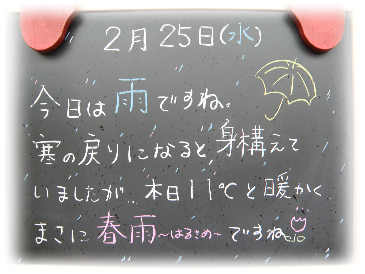 2月25日(水)
今日は雨ですね。
寒の戻りになると,身構えて
いましたが 本日11℃と暖かく
まさに春雨〜はるさめ〜ですね